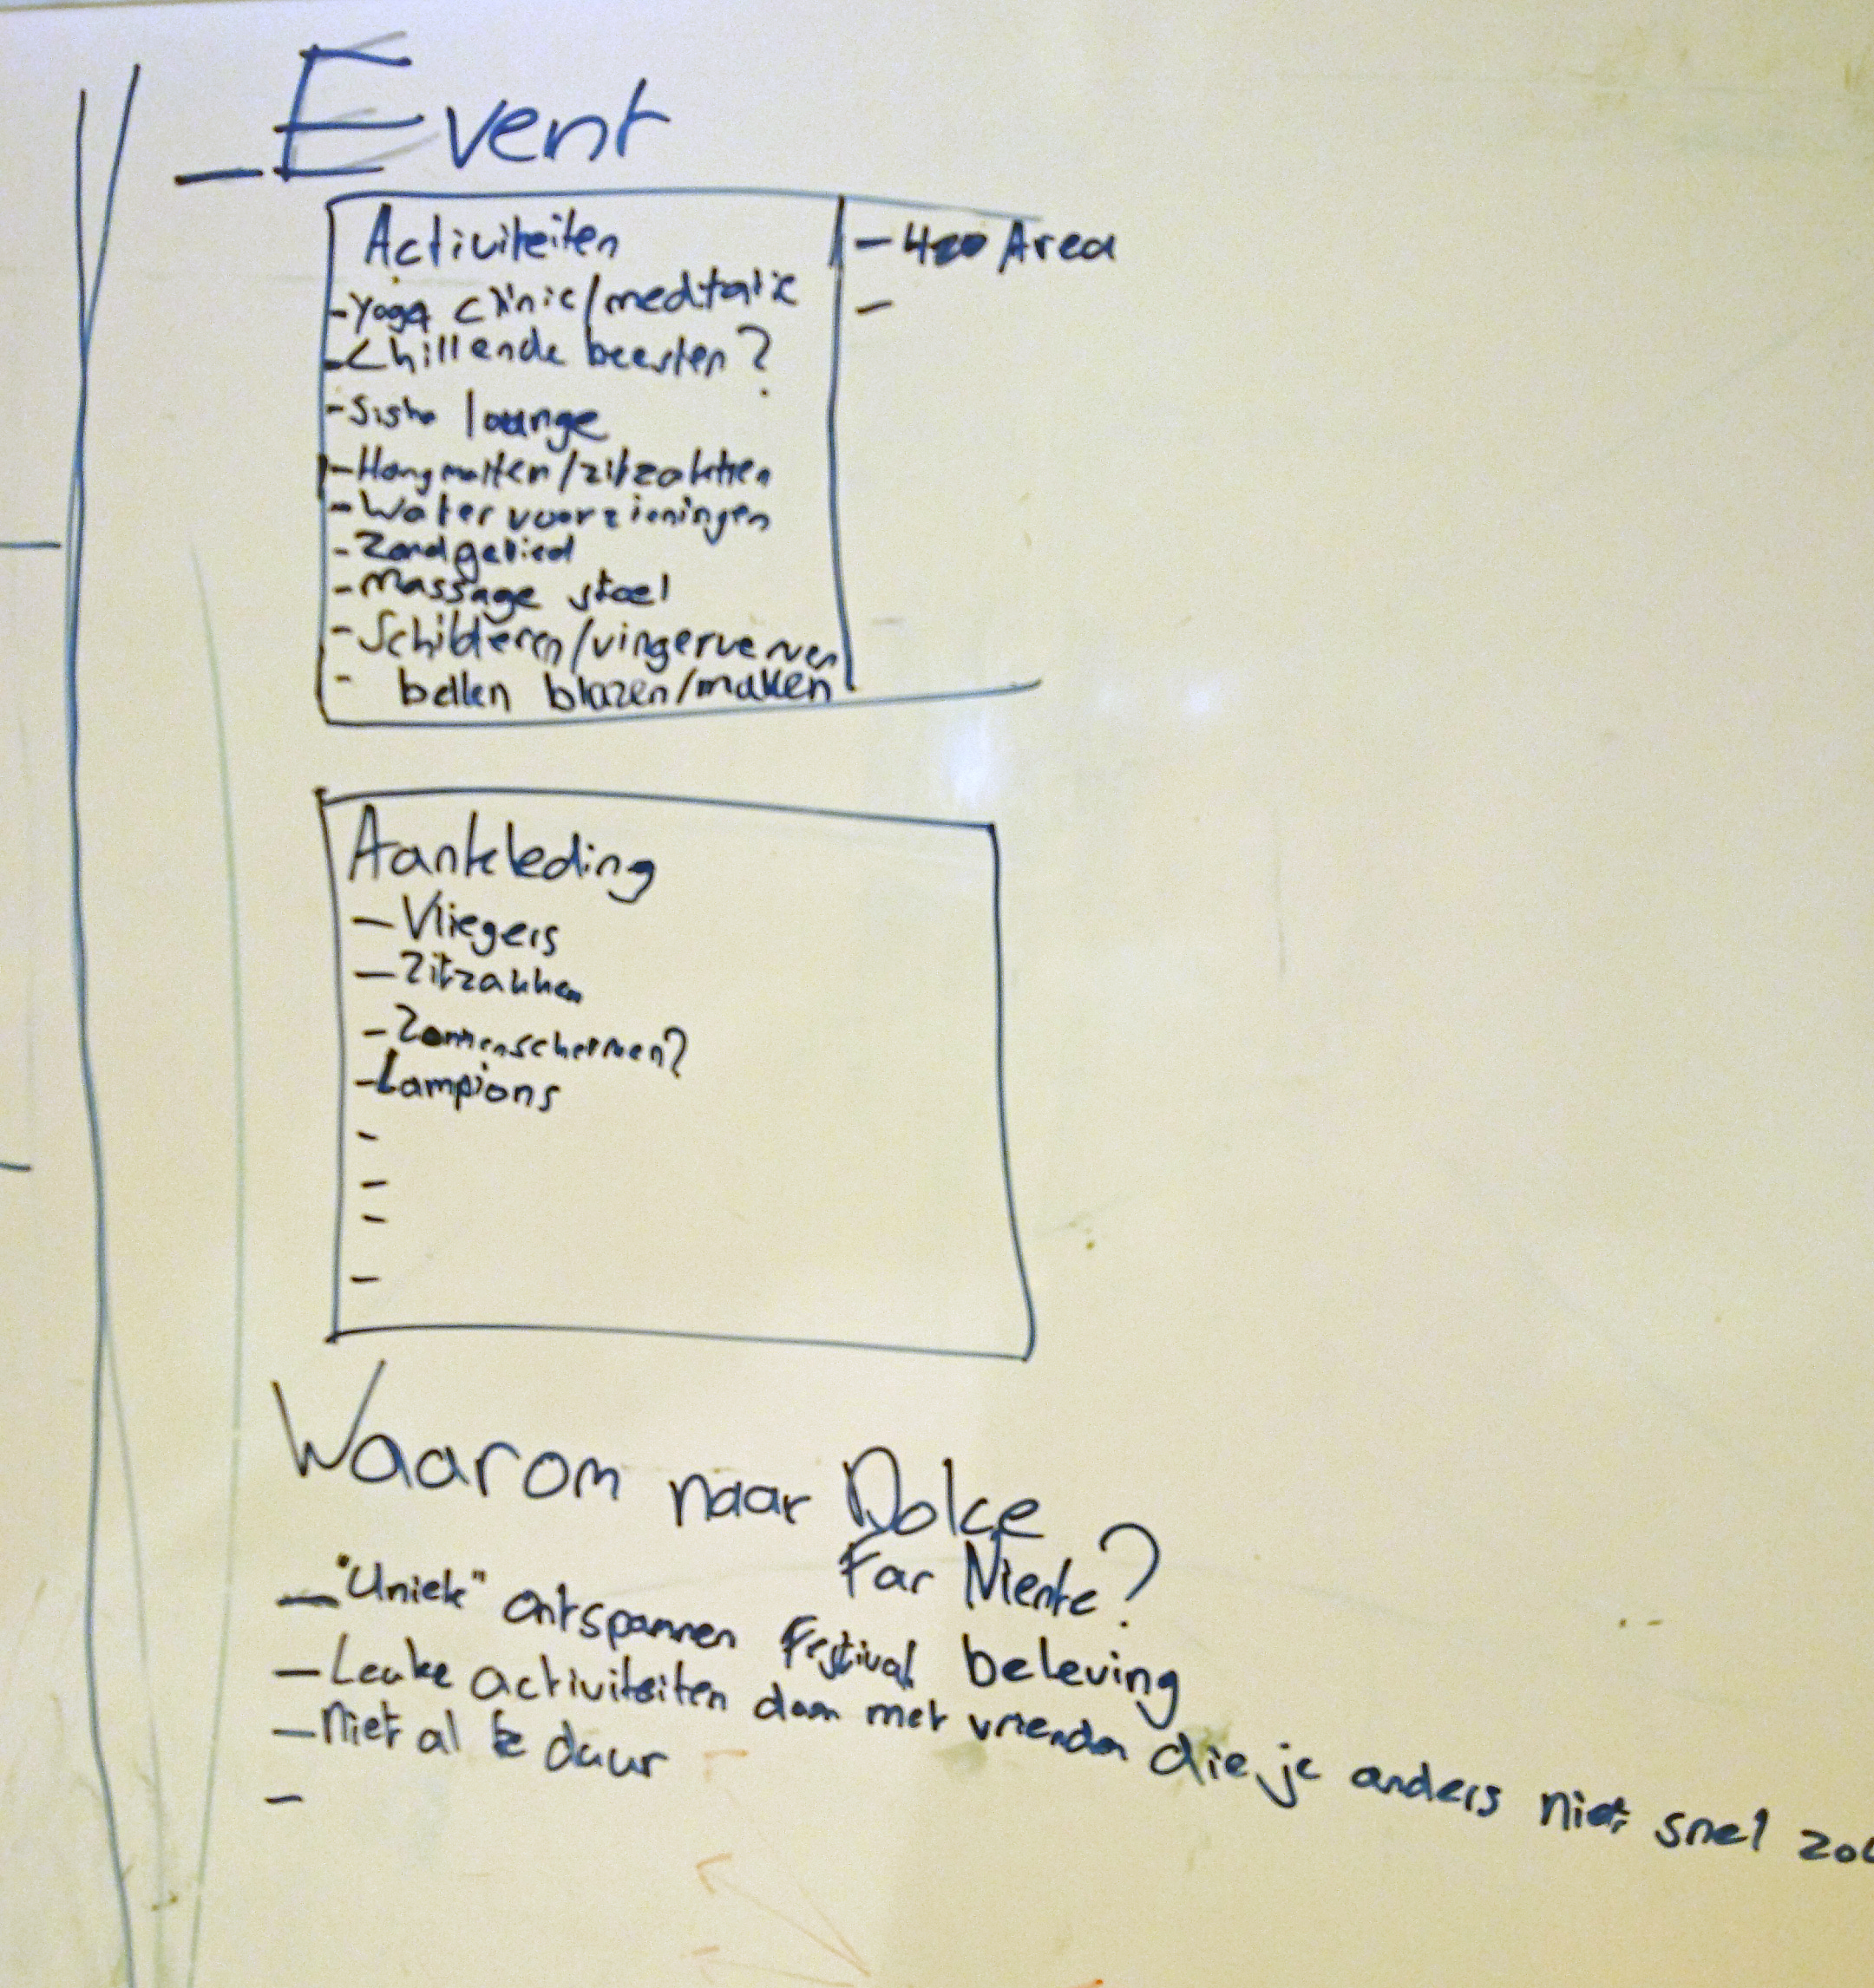 Event
Activiteiten
- Yoga clinic/meditatie
- Chillende beesten?
- Sisha lounge
- Hangmatten/zitzakken
- Water voorzieningen
- Zandgebied
- Massage stoel
- Schilderen/vingerverven
- bellen blazen/maken
- 420 Area
-
Aankleding
- Vliegers
- Zitzakken
- Zonnenschermen?
- Lampions
-
-
-
-
Waarom naar Dolce
Far Niente?
- "Uniek" ontspannen Festival beleving
- Leuke activiteiten doen met vrienden die je anders niet snel zou
- Niet al te duur
-